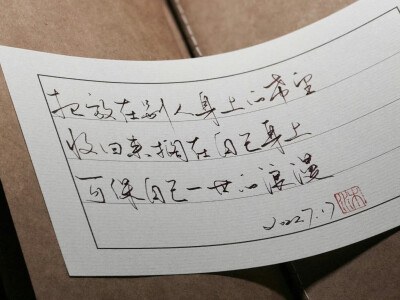 把放在别人身上的希望
收回来搁在自己身上
可保自己一世的浪漫
2022.7.17